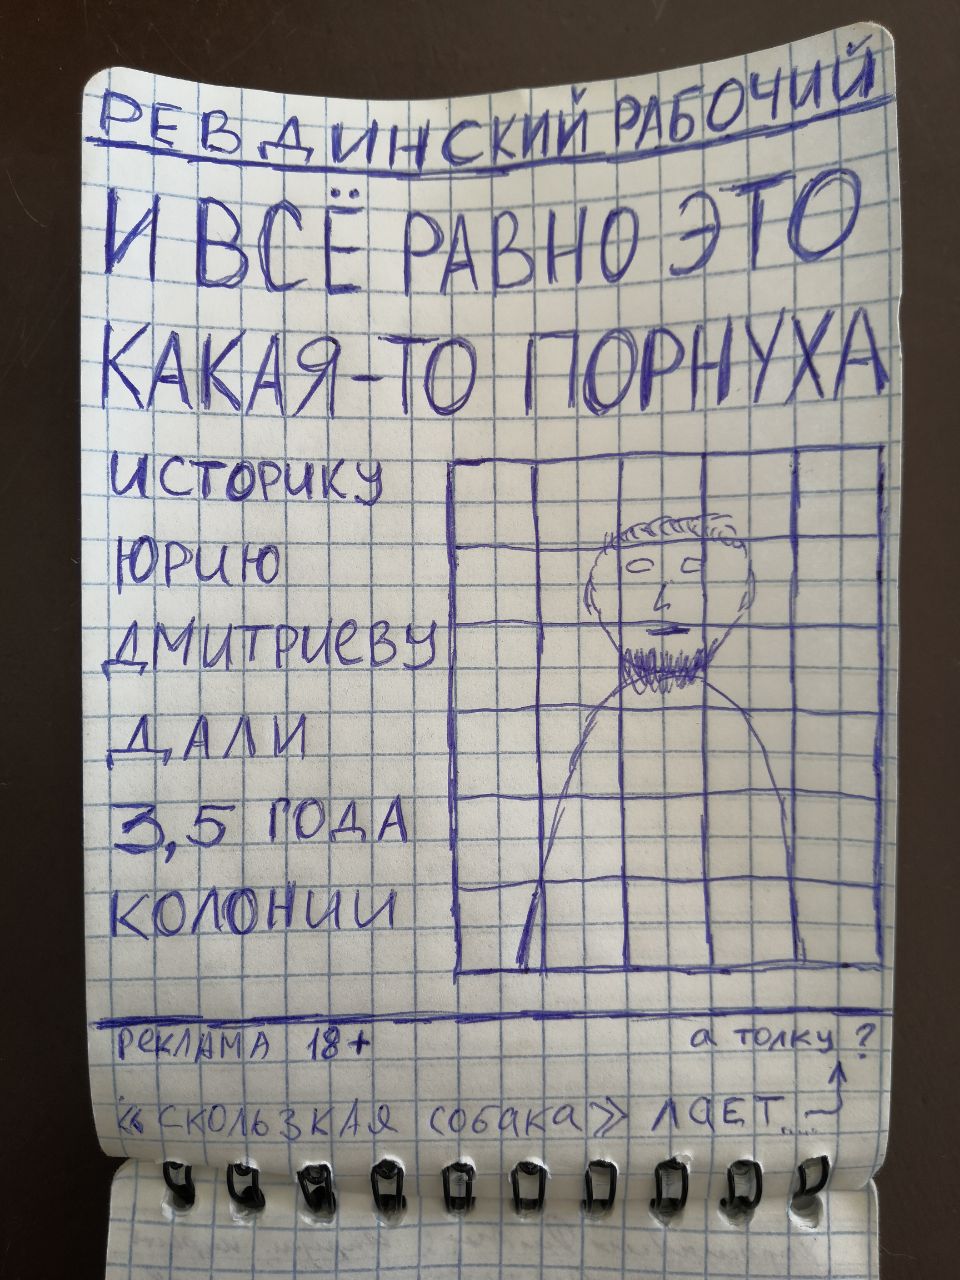 РЕВДИНСКИЙ РАБОЧИЙ
И ВСЁ РАВНО ЭТО
КАКАЯ-ТО ПОРНУХА
ИСТОРИКУ
ЮРИЮ
ДМИТРИЕВУ
ДАЛИ
3,5 ГОДА
КОЛОНИИ
РЕКЛАМА 18+
а толку?
«СКОЛЬЗКАЯ СОБАКА» ЛАЕТ.....